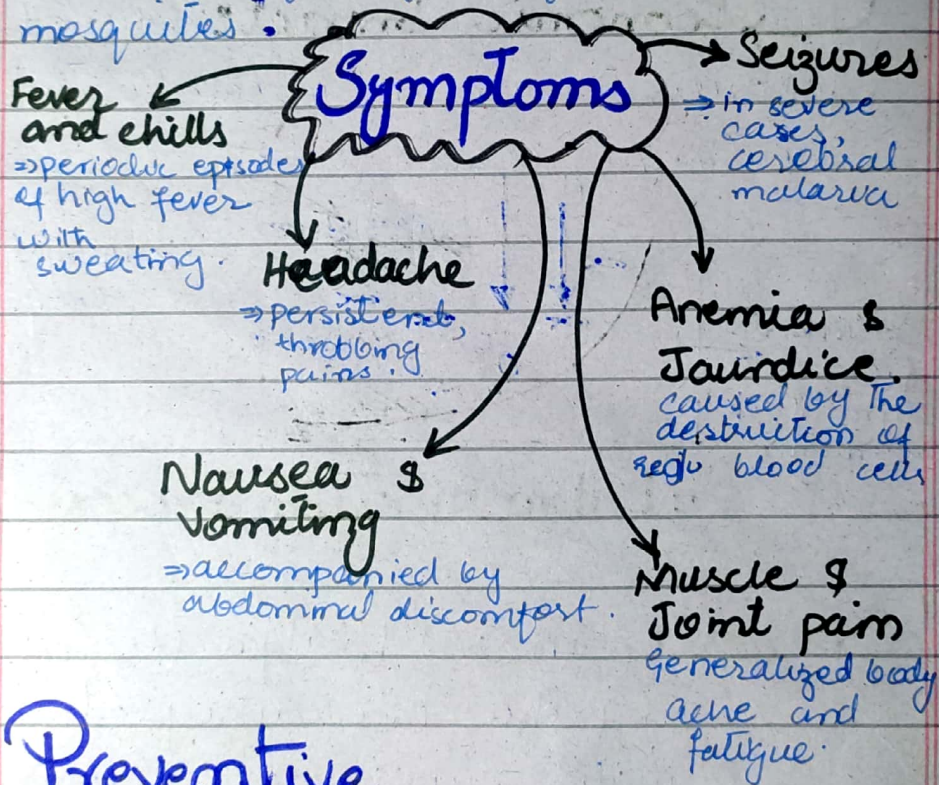 mosquites.
Symptoms
Fever
and chills
⇒ periodic episodes
of high fever
with
sweating.
Headache
⇒ persistent,
throbbing
pains.
Nausea &
Vomiting
⇒ accompanied by
abdominal discomfort.
Seizures
⇒ in severe
cases,
cerebral
malaria
Anemia &
Jaundice.
caused by the
destruction of
blood cells
Muscle &
Joint pain
Generalized body
ache and
fatigue.
Preventive